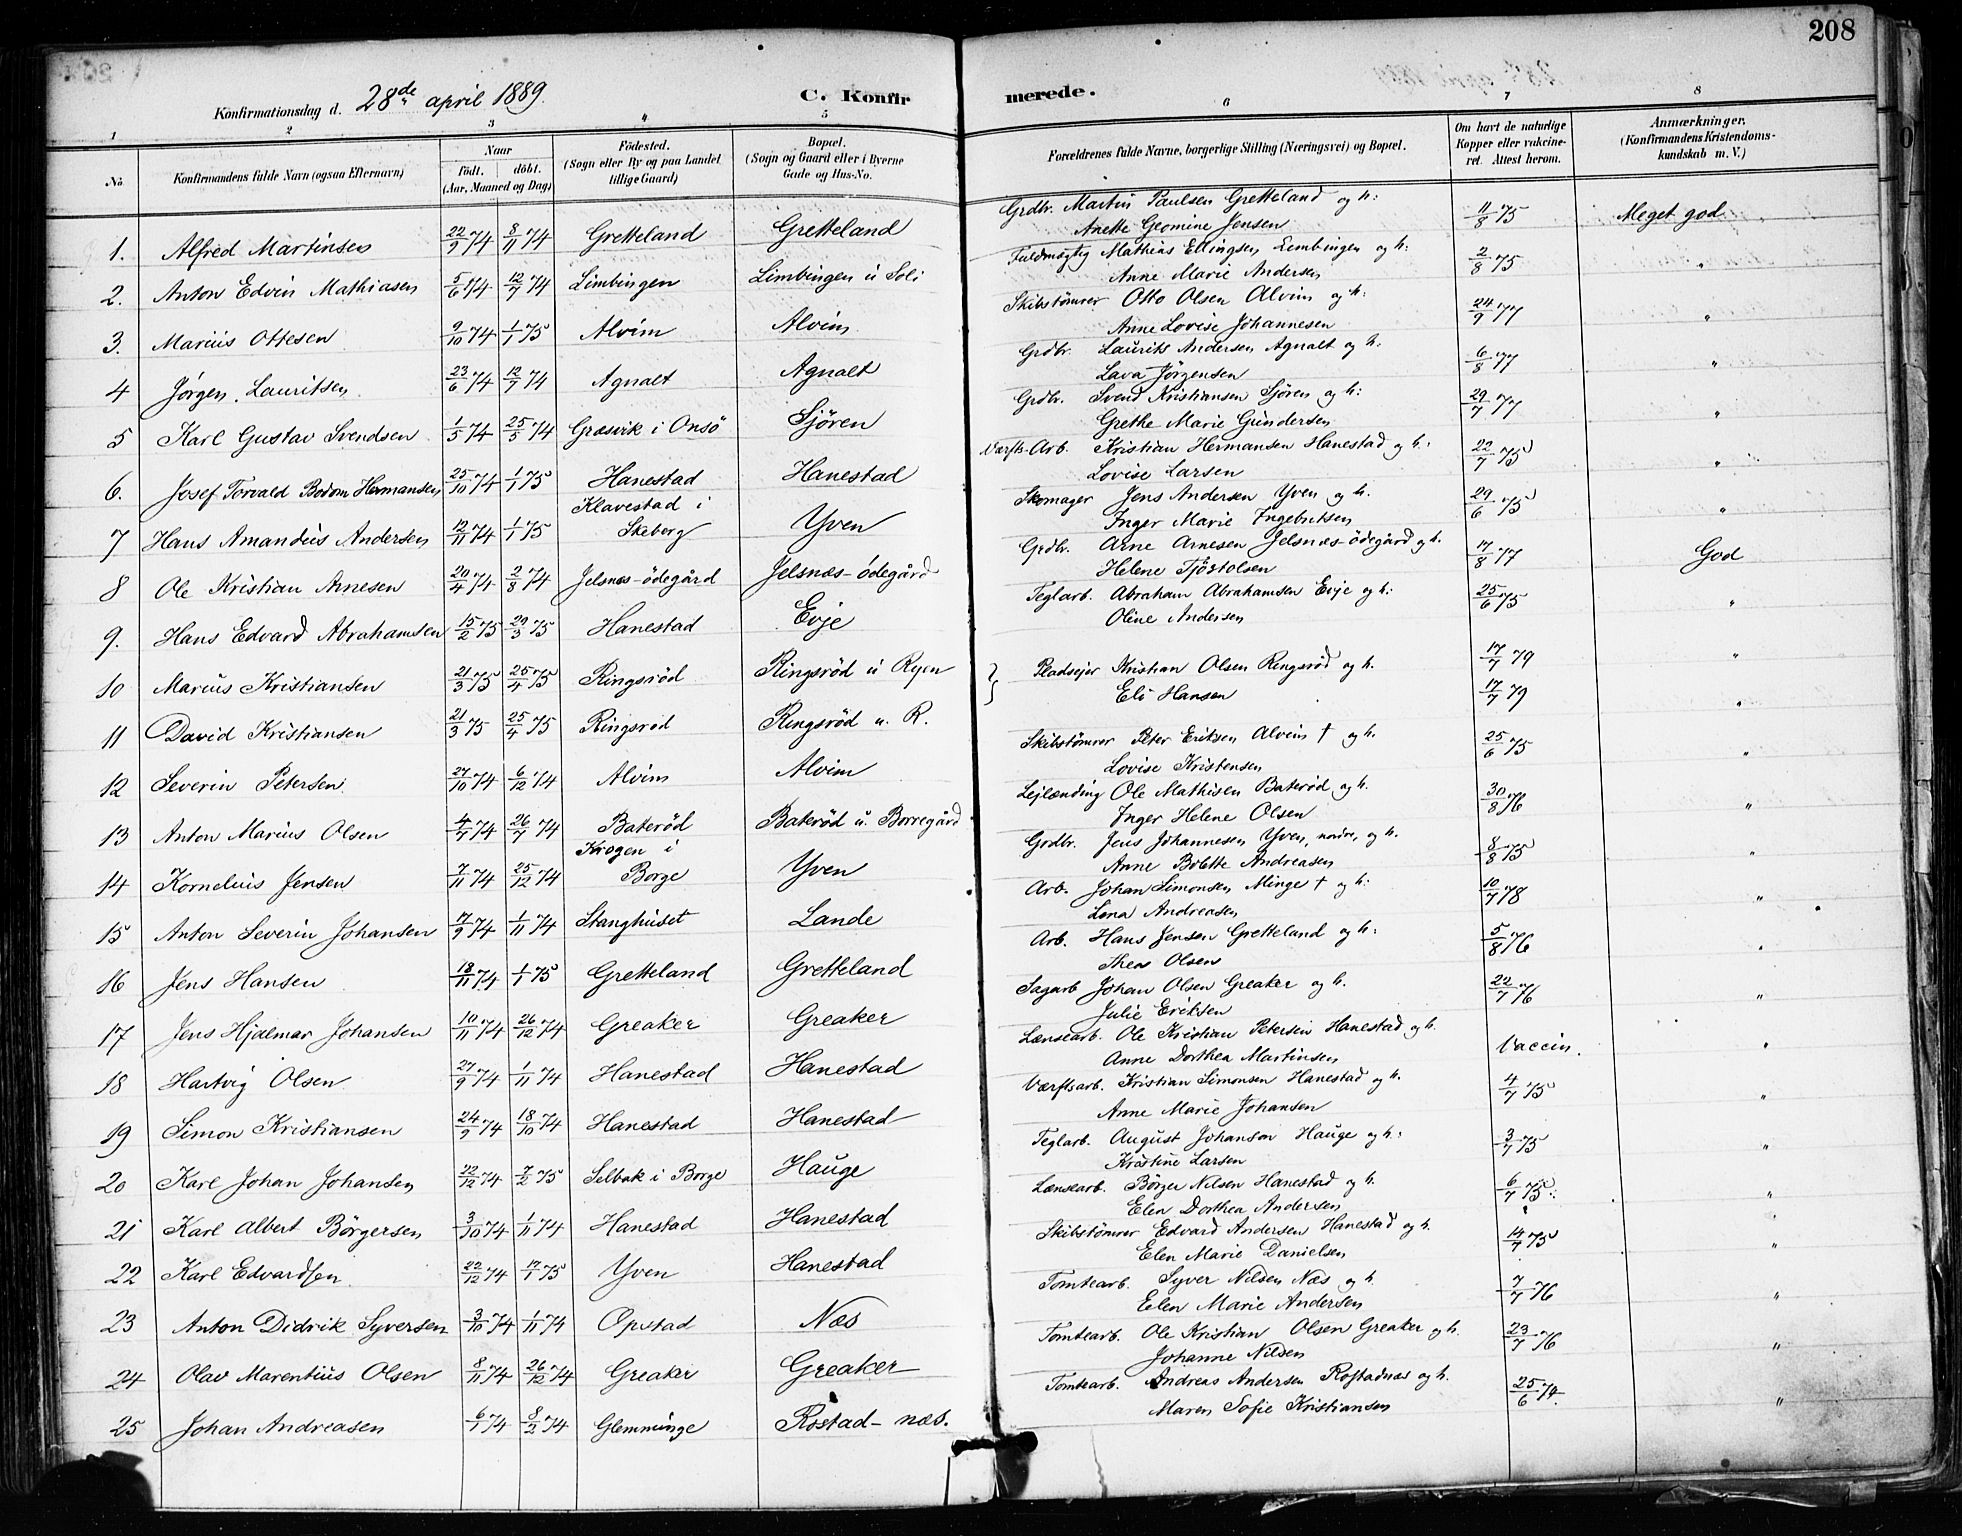 208
Konfirmationsdag d. 28de april 1889.
C. Konfirmerede.
1 2 3 4 5 6 7 8
No
Konfirmandens fulde Navn (ogsaa Efternavn)
Naar
födt. döbt.
(Aar, Maaned og Dag)
Födested.
(Sogn eller By og paa Landet
tillige Gaard)
Bopæl.
(Sogn og Gaard eller i Byerne
Gade og Hus-No.
Forældrenes fulde Navne, borgerlige Stilling (Næringsvei) og Bopæl.
Om havt de naturlige
Kopper eller vakcine-
ret. Attest herom.
Anmærkninger.
(Konfirmandens Kristendoms-
kundskab m. V.)
1. Alfred Martinsen 22/9 74 8/11 74 Gretteland Gretteland Grdbr. Martin Paulsen Gretteland og h: 11/8 75 Meget god
Anette Geomine Jensen
2. Anton Edvin Mathiasen 5/6 74 12/7 74 Limbingen Limbingen u Soli Fuldmægtig Mathias Ellingsen Limbingen og h: 2/8 75 "
Anne Marie Andersen
3. Marius Ottesen 9/10 74 1/1 75 Alvim Alvim Skibstömrer Otto Olsen Alvim og h: 24/9 77 "
Anne Lovise Johannesen
4 Jörgen Lauritsen 23/6 74 12/7 74 Agnalt Agnalt Grdbr. Laurits Andersen Agnalt og h: 6/8 77 "
Lava Jörgensen
5 Karl Gustav Svendsen 1/5 74 25/5 74 Græsvik i Onsö Sjören Grdbr. Svend Kristiansen Sjören og h: 29/7 77 "
Grethe Marie Gundersen
6. Josef Torvald Bodom Hermansen 25/10 74 1/1 75 Hanestad Hanestad Værfts-Arb. Kristian Hermansen Hanestad og h: 22/7 75 "
Lovise Larsen
7 Hans Amandus Andersen 12/11 74 1/1 75 Klavestad i Skeberg Yven Skomager Jens Andersen Yven og h. 29/6 75 "
Inger Marie Ingebretsen
8 Ole Kristian Arnesen 20/4 74 2/8 74 Jelsnæs-ödegård Jelsnæs-ödegård Grdbr. Arne Arnesen Jelsnæs-ödegård og h. 17/8 77 God
Helene Tjöstolsen
9. Hans Edvard Abrahamsen 15/2 75 29/3 75 Hanestad Evje Teglarb. Abraham Abrahamsen Evje og h: 25/6 75 "
Oline Andersen
10 Marius Kristiansen 21/3 75 25/4 75 Ringsröd Ringsröd u Ryen Pladsejer Kristian Olsen Ringsröd og h. 17/7 79 "
Eli Hansen
11 David Kristiansen 21/3 75 25/4 75 Ringsröd Ringsröd u. R. 17/7 79 "
12 Severin Petersen 27/10 74 6/12 74 Alvim Alvim Skibstömrer Peter Eriksen Alvim † og h. 25/6 75 "
Lovise Kristensen
13 Anton Marius Olsen 4/7 74 26/7 74 Bateröd Bateröd u. Borregård Lejlænding Ole Mathisen Bateröd og h. 30/8 76 "
Inger Helene Olsen
14 Kornelius Jensen 7/11 74 25/12 74 Krogen i Borge Yven Grdbr. Jens Johannesen Yven, nordre, og h. 8/8 75 "
Anne Bolette Andreasen
15 Anton Severin Johansen 17/9 74 1/11 74 Stanghuset Lande Arb. Johan Simonsen Minge † og h: 10/7 78 "
Lena Andreasen
16 Jens Hansen 18/11 74 1/1 75 Gretteland Gretteland Arb. Hans Jensen Gretteland og h: 5/8 76 "
Thea Olsen
17 Jens Hjalmar Johansen 10/11 74 26/12 74 Greaker Greaker Sagarb Johan Olsen Greaker og h. 22/7 76 "
Julie Eriksen
18 Hartvig Olsen 27/9 74 1/11 74 Hanestad Hanestad Lænsearb. Ole Kristian Petersen Hanestad og h. Vaccin. "
Anne Dorthea Martinsen
19 Simon Kristiansen 24/9 74 18/10 74 Hanestad Hanestad Værftsarb. Kristian Simonsen Hanestad og h. 4/7 75 "
Anne Marie Johansen
20 Karl Johan Johansen 22/12 74 7/2 75 Selbak i Borge Hauge Teglarb. August Johanson Hauge og h: 3/7 75 "
Kristine Larsen
21 Karl Albert Börgersen 3/10 74 1/11 74 Hanestad Hanestad Lænsearb. Börger Nilsen Hanestad og h. 6/7 75 "
Elen Dorthea Andersen
22 Karl Edvardsen 22/12 74 17/1 75 Yven Hanestad Skibstömrer Edvard Andersen Hanestad og h. 14/7 75 "
Elen Marie Danielsen
23 Anton Didrik Syversen 3/10 74 1/11 74 Opstad Næs Tomtearb. Syver Nilsen Næs og h. 7/7 76 "
Elen Marie Andersen
24 Olav Marentius Olsen 8/11 74 26/12 74 Greaker Greaker Tomtearb. Ole Kristian Olsen Greaker og h. 23/7 76 "
Johanne Nilsen
25 Johan Andreasen 6/1 74 8/2 74 Glemminge Rostad-næs. Tomtearb. Andreas Andersen Rostadnæs og h. 25/6 74. "
Maren Sofie Kristiansen